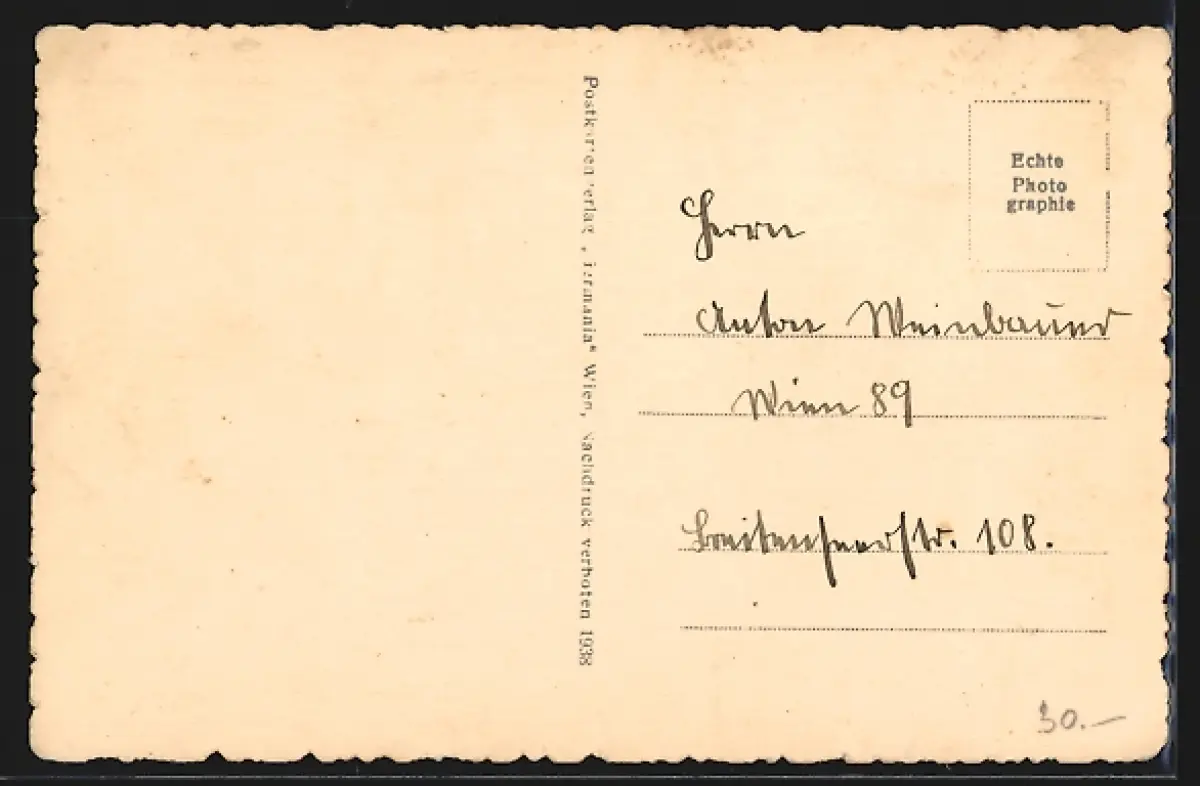 Postkartenverlag „Germania“ Wien, Nachdruck verboten 1938
Echte
Photo
graphie
Herrn
Anton Weinbauer
Wien 89
Breitenseerstr. 108.
30.—